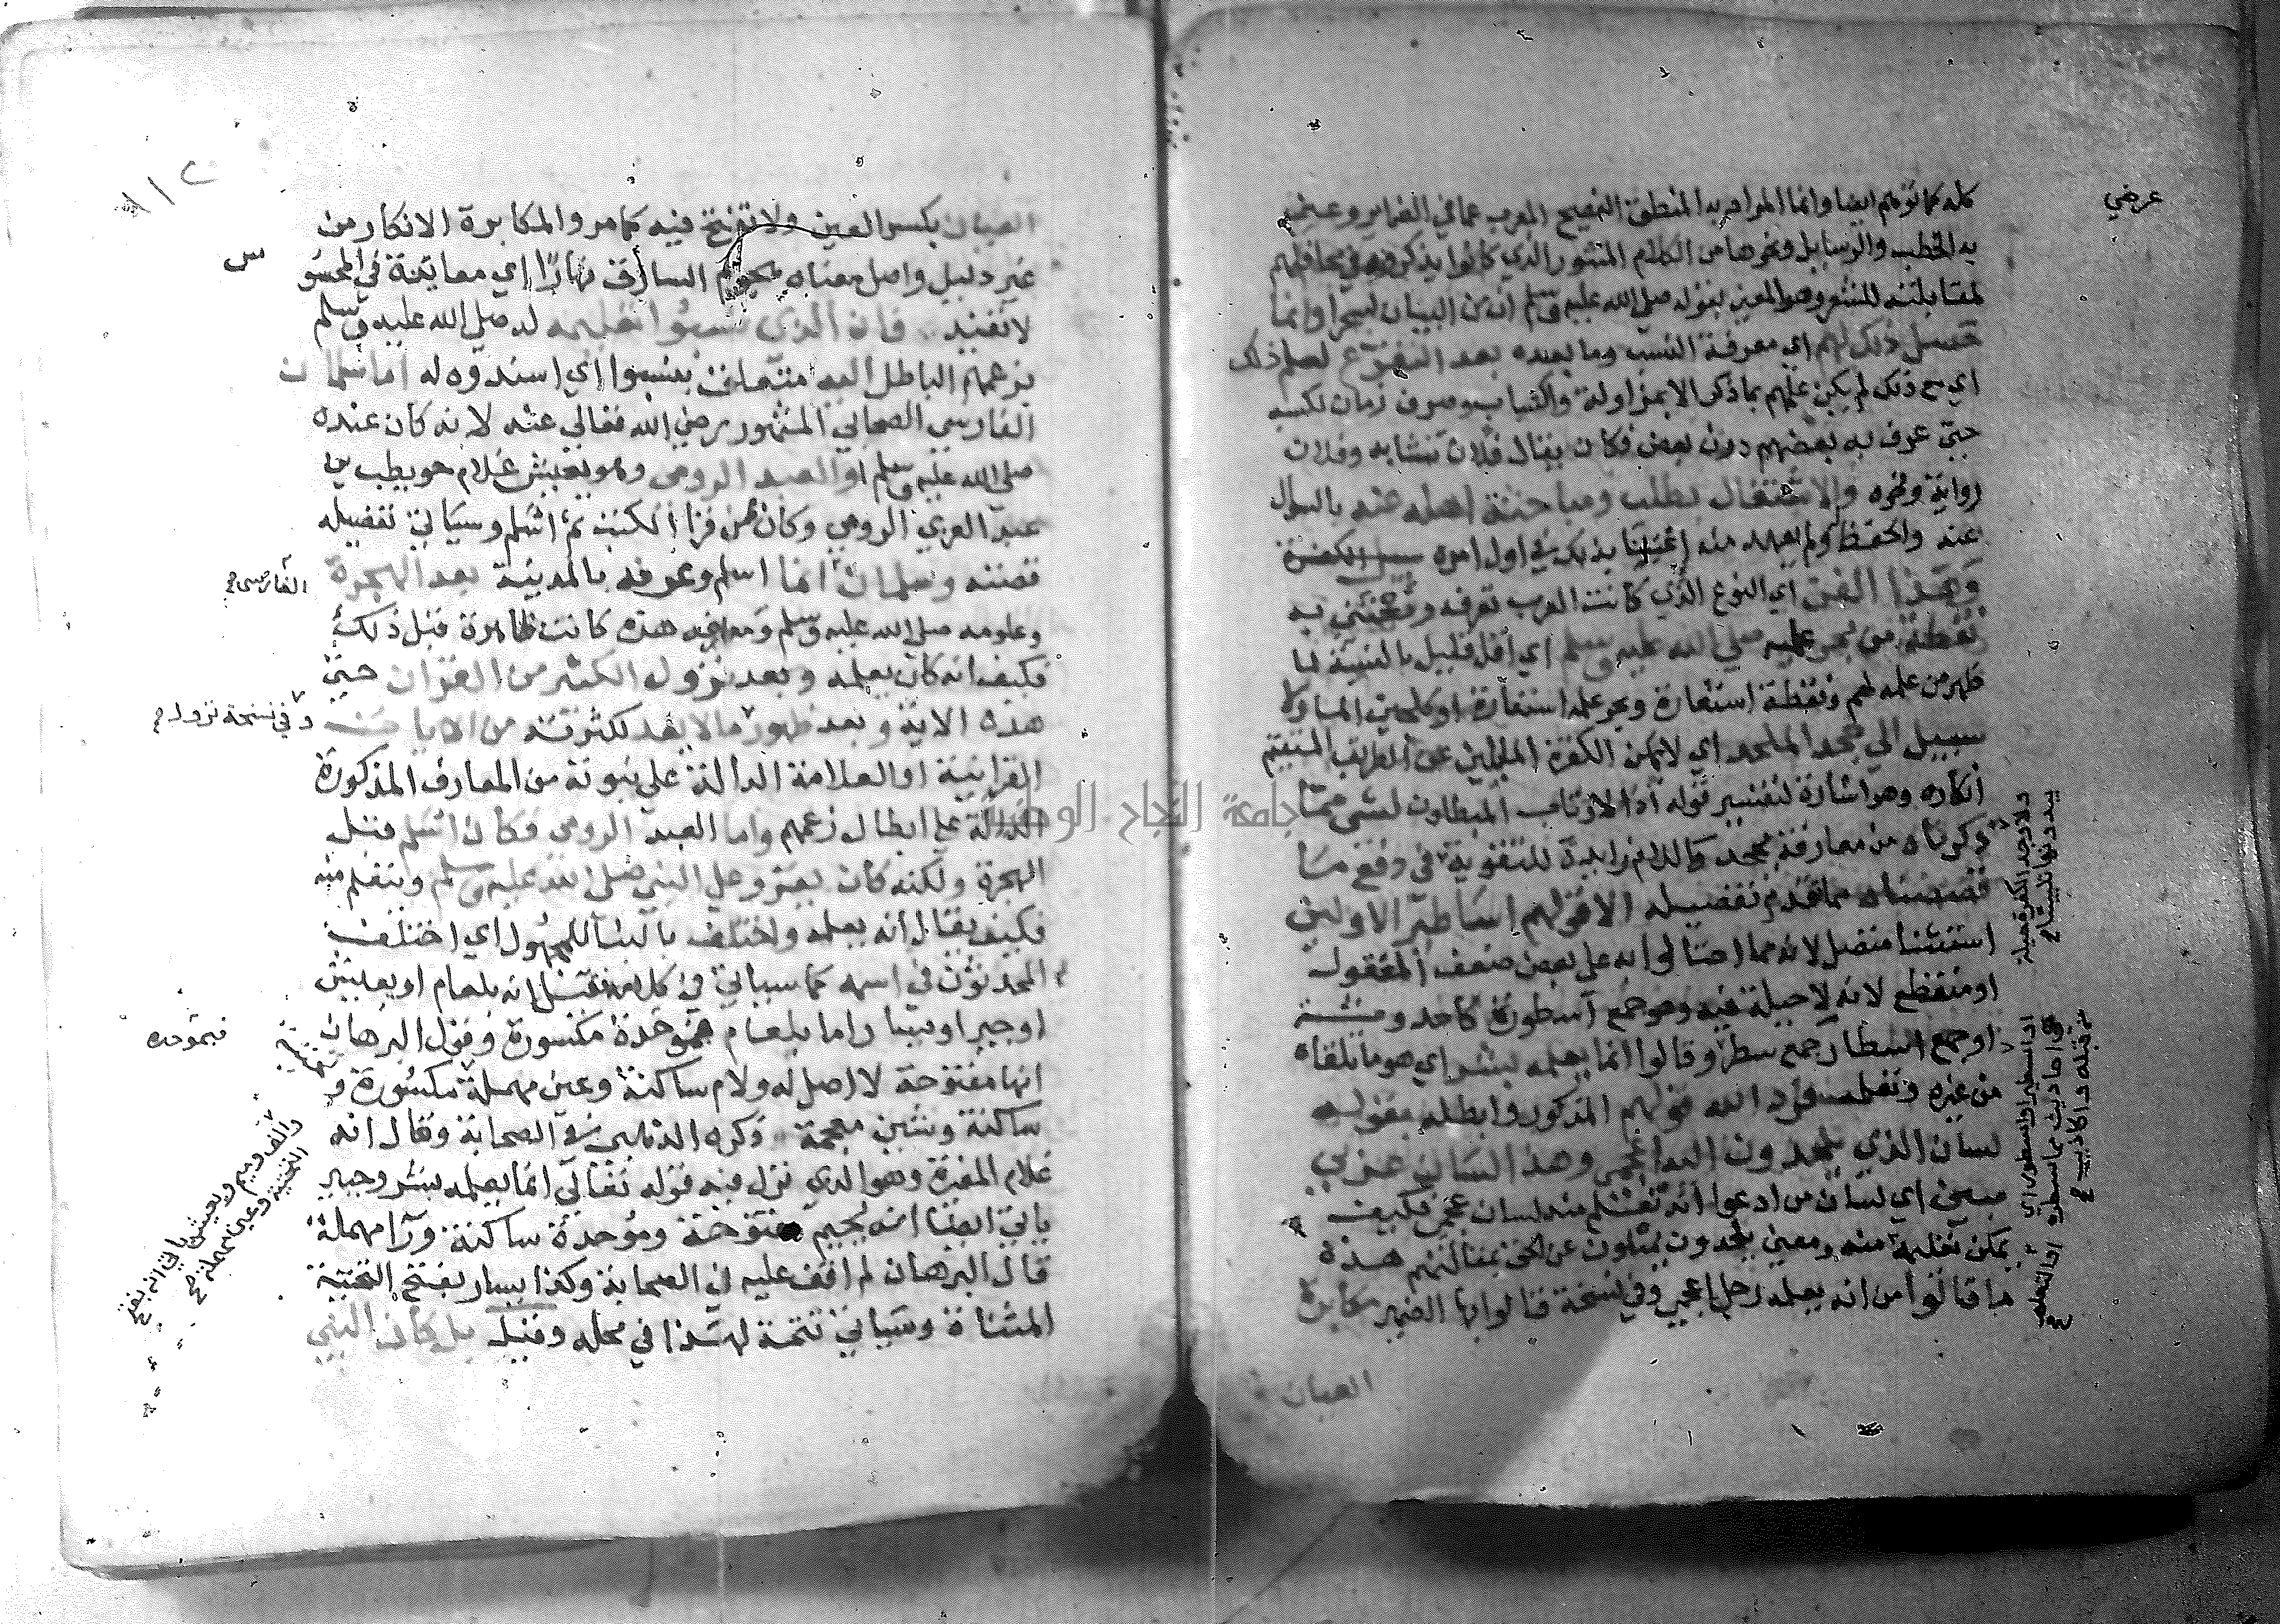 عرضي
كله كما توهم ايضا وانما المراد به المنطق الفصيح المعرب عما في الضماير وعني
به الخطب والرسايل ونحوها من الكلام المنثور الذي كانوا يذكرونه في محافلهم
لمقابلته للشعر وهو المعني بقوله صلى الله عليه وسلم ان من البيان لسحرا وانما
حصل ذلك لهم اي معرفة النسب وما بعده بعد التفرغ لعلم ذلك
اي مع ذلك لم يكن علمهم بما ذكر الا بمزاولة واكتساب وصرف زمان لكسبه
حتى عرف به بعضهم دون بعض فكان يقال فلان نسابه وفلان
رواية ونحوه والاشتغال بطلب ومباحثة اهله عنه بالسوال
عنه والحفظ ولم يعهد منه اعتنا بذلك في اول امره
وهذا الفن اي النوع الذي كانت العرب تعرفه وتعتني به
نقطة من بحر علمه صلى الله عليه وسلم اي اقل قليل بالنسبة لما
ظهر من علمه لهم ونقطة استعارة وبحر علمه استعارة او كلجين الما ولا
سبيل الى جحد الملحد اي لا يمكن الكفرة المايلين عن الطريق المستقيم
انكاره وهو اشارة لتفسير قوله اذا لارتاب المبطلون لشي مما
ذكرناه من معارفه بجحد واللام زايدة للتقوية في دفع ما
قصصناه مما قدم تفصيله الا قولهم اساطير الاولين
استثنا متصل لانه مما احتالوا به على بعض ضعف العقول
او منقطع لانه لا حيلة فيه وهو جمع اسطورة كاحدوثة
او جمع اسطار جمع سطر وقالوا انما يعلمه بشر اي هو ما تلقاه
من غيره وتعلمه فرد الله قولهم المذكور وابطله بقوله
لسان الذي يلحدون اليه اعجمي وهذا لسان عربي
مبين اي لسان من ادعوا انه تعلم منه لسان عجمي فكيف
يمكن تعليمه منه ومعنى يلحدون يميلون عن الحق بمقالتهم هذه
ما قالوا من انه يعلمه رجل اعجمي وفي نسخة قالوا بها الضمير مكابرة
العيان
العيان بكسر العين ولا تفتح فيه كما مر والمكابرة الانكار من
غير دليل واصل معناه السارق نهارا اي معاينة في المحسو
س
لا تفيد فان الذي نسبوا تعليمه له صلى الله عليه وسلم
بزعمهم الباطل اليه متعلق بنسبوا اي اسندوه له اما سلمان
الفارسي الصحابي المشهور رضي الله تعالى عنه لانه كان عنده
صلى الله عليه وسلم او العبد الرومي وهو يعيش غلام حويطب بن
عبد العزي الرومي وكان ممن قرا الكتب ثم اسلم وسياتي تفصيله
قصته وسلمان انما اسلم وعرفه بالمدينة بعد الهجرة
الفارسي صح
وعلومه صلى الله عليه وسلم ومعارفه هذه كانت ظاهرة قبل ذلك
فكيف انه كان يعلمه وبعد نزول الكثير من القران حتى
وفي نسخة نزول صح
هذه الاية وبعد ظهور ما لا يعد لكثرته من الايات
القرانية او العلامة الدالة على نبوته من المعارف المذكورة
الدالة على ابطال زعمهم واما العبد الرومي فكان اسلم قبل
الهجرة ولكنه كان يقرو على النبي صلى الله عليه وسلم ويتعلم منه
فكيف يقال انه يعلمه واختلف بالبنا للمجهول اي اختلف
المحدثون في اسمه كما سياتي في كلامه فقيل انه بلعام او يعيش
او جبر او يسار اما بلعام فبموحدة مكسورة وقول البرهان
فبموحدة
انها مفتوحة لا اصل له ولام ساكنة وعين مهملة مكسورة و
ساكنة وشين معجمة ذكره الذهبي في الصحابة وقال انه
غلام المغيرة وهو الذي نزل فيه قوله تعالى انما يعلمه بشر وجبر
ياتي ايضا انه بجيم مفتوحة وموحدة ساكنة ورا مهملة
قال البرهان لم اقف عليه في الصحابة وكذا يسار بفتح التحتية
المثناة وسياتي تتمة لهذا في محله وقيل بل كان النبي
والف وميم ويعيش ياتي انه بفتح
التحتية وعين مهملة صح
جامعة النجاح الوطنية